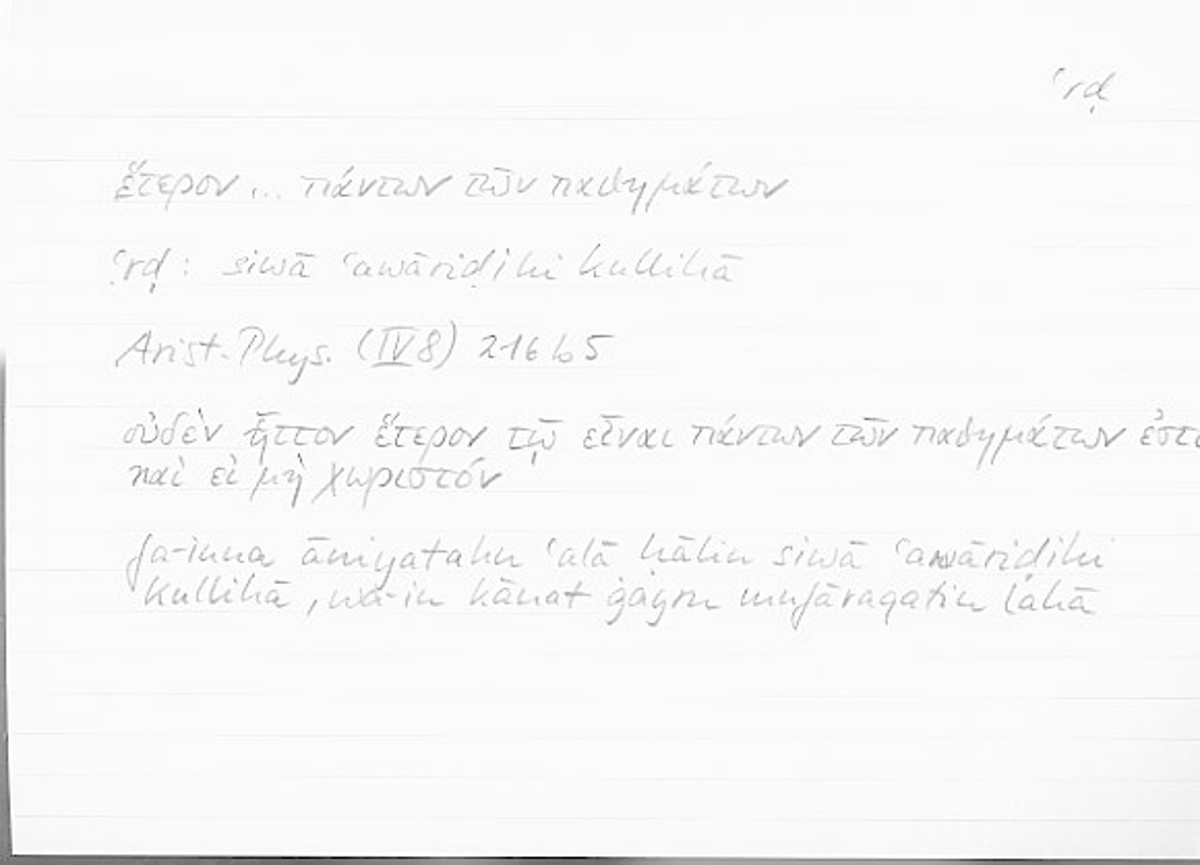 ʿrḍ
ἕτερον ... πάντων τῶν παθημάτων
ʿrḍ: siwā ʿawāriḍihi kullihā
Arist. Phys. (IV 8) 216 b 5
οὐδὲν ἧττον ἕτερον τῷ εἶναι πάντων τῶν παθημάτων ἐστὶ
καὶ εἰ μὴ χωριστόν
fa-inna ānīyatahu ʿalā ḥālin siwā ʿawāriḍihi
kullihā, wa-in kānat ġayra mufāraqatin lahā